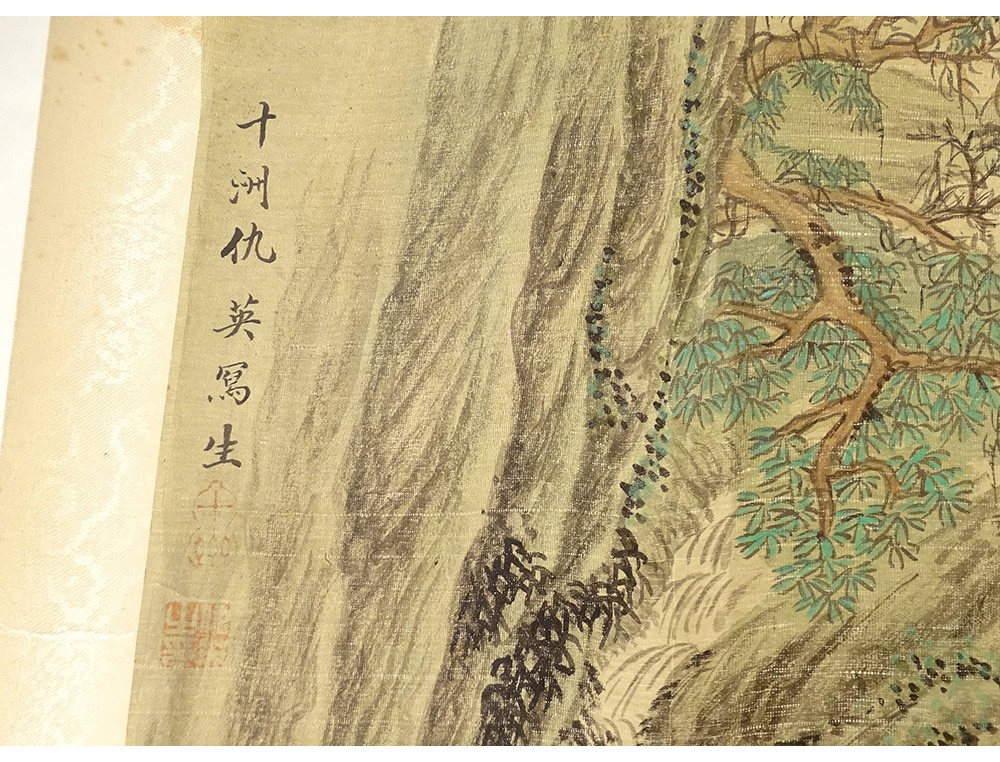 十洲仇英寫生